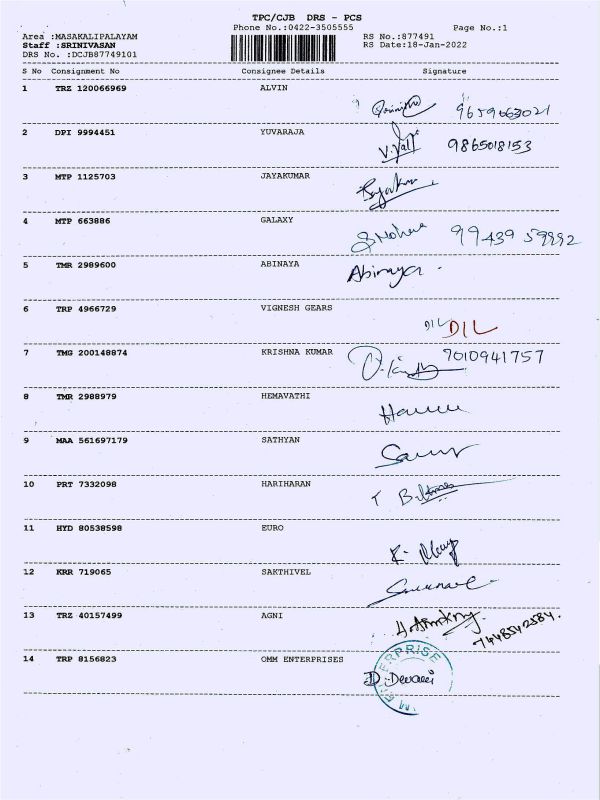 TPC/CJB DRS - PCS
Phone No.:0422-3505555 Page No.:1
Area :MASAKALIPALAYAM RS No.:877491
Staff :SRINIVASAN RS Date:18-Jan-2022
DRS No. :DCJB87749101
S No Consignment No Consignee Details Signature
1 TRZ 120066969 ALVIN
9659663021
2 DPI 9994451 YUVARAJA
9865018153
3 MTP 1125703 JAYAKUMAR
4 MTP 663886 GALAXY
99439 59992
5 TMR 2989600 ABINAYA
Abinaya
6 TRP 4966729 VIGNESH GEARS
DIL DIL
7 TMG 200148874 KRISHNA KUMAR 7010941757
8 TMR 2988979 HEMAVATHI
9 MAA 561697179 SATHYAN
10 PRT 7332098 HARIHARAN
11 HYD 80538598 EURO
12 KRR 719065 SAKTHIVEL
13 TRZ 40157499 AGNI
7448542584.
14 TRP 8156823 OMM ENTERPRISES